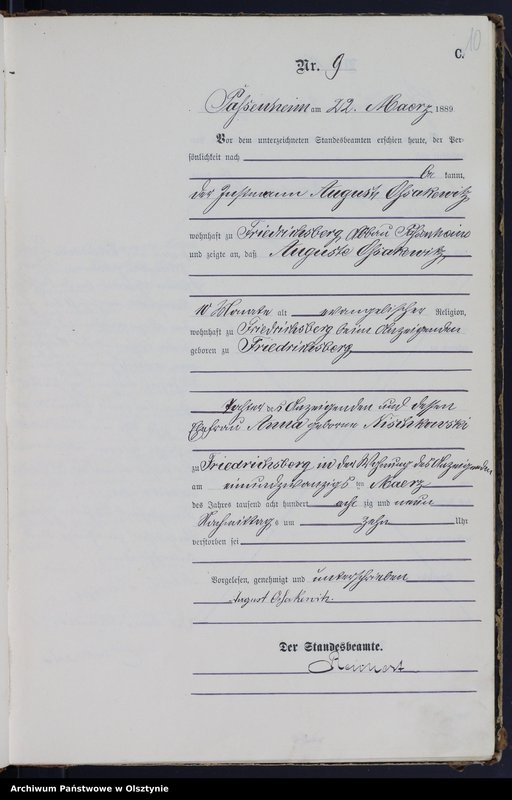 10
C.
Nr. 9
Passenheim am 22. Maerz 1889
Vor dem unterzeichneten Standesbeamten erschien heute, der Per-
sönlichkeit nach
be kannt,
der Instmann August
wohnhaft zu Friedrichsberg Abbau Passenheim
und zeigte an, daß Auguste
10 Monate alt evangelischer Religion,
wohnhaft zu Friedrichsberg beim Anzeigenden
geboren zu Friedrichsberg
Tochter des Anzeigenden und dessen
Ehefrau Anna geborene
zu Friedrichsberg in der Wohnung des Anzeigenden
am einundzwanzigs ten Maerz
des Jahres tausend acht hundert acht zig und neun
Nachmittags um zehn Uhr
verstorben sei
Vorgelesen, genehmigt und unterschrieben
August
Der Standesbeamte.
Archiwum Państwowe w Olsztynie